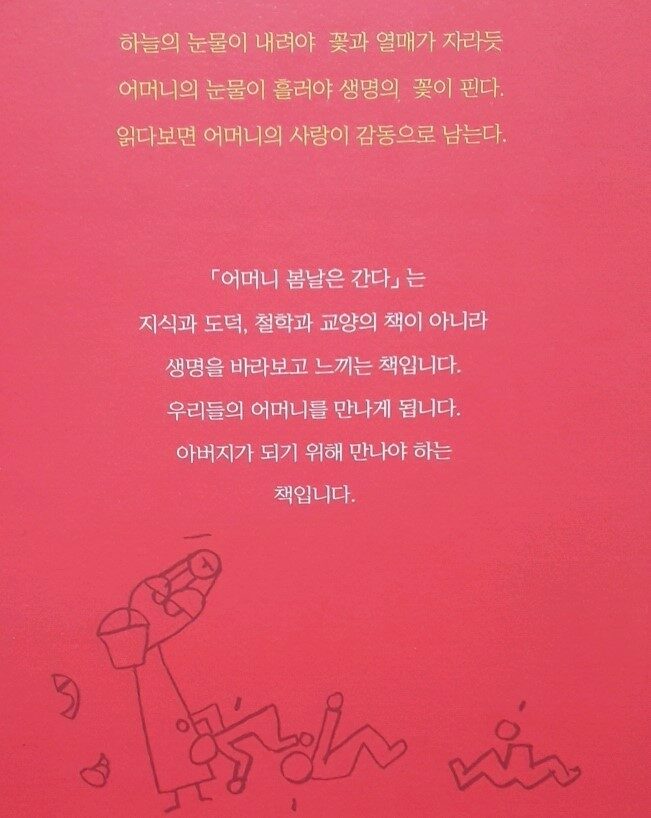 하늘의 눈물이 내려야 꽃과 열매가 자라듯
어머니의 눈물이 흘러야 생명의 꽃이 핀다.
읽다보면 어머니의 사랑이 감동으로 남는다.
「어머니 봄날은 간다」는
지식과 도덕, 철학과 교양의 책이 아니라
생명을 바라보고 느끼는 책입니다.
우리들의 어머니를 만나게 됩니다.
아버지가 되기 위해 만나야 하는
책입니다.